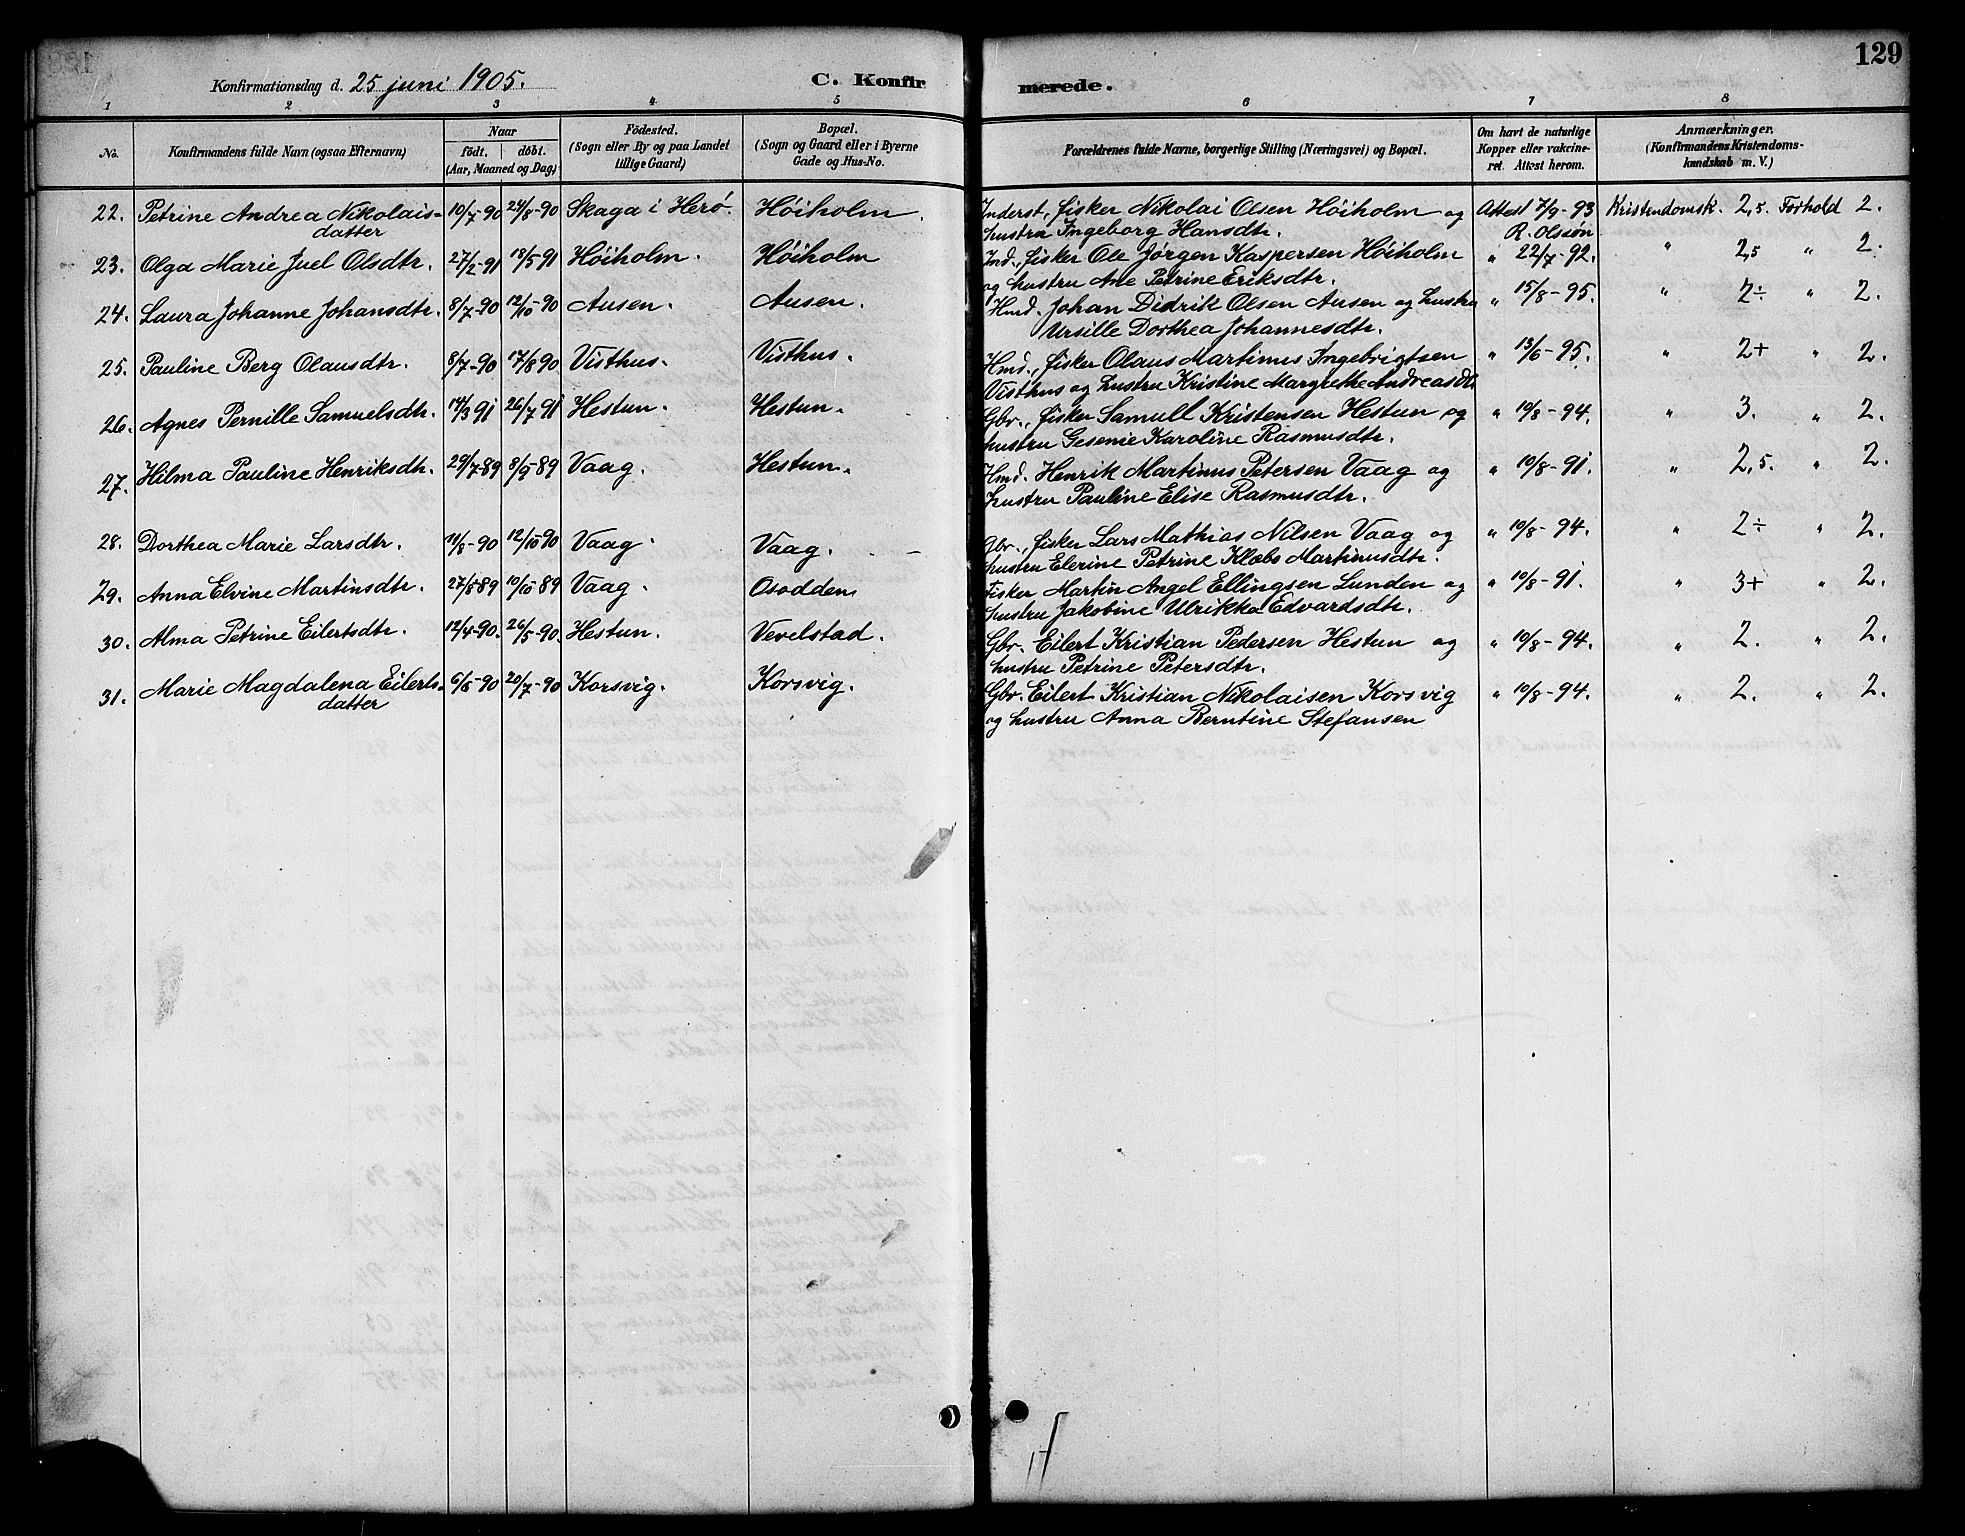 129
Konfirmationsdag d. 25 juni 1905. C. Konfirmerede.
1 2 3 4 5 6 7 8
No. Konfirmandens fulde Navn (ogsaa Efternavn) Naar født, døbt. (Aar, Maaned og Dag) Fødested. (Sogn eller By og paa Landet tillige Gaard) Bopæl. (Sogn og Gaard eller i Byerne Gade og Hus-No. Forældrenes fulde Navne, borgerlige Stilling (Næringsvei) og Bopæl. Om havt de naturlige Kopper eller vakcineret. Attest herom. Anmærkninger. (Konfirmandens Kristendomskundskab m. V.)
22. Petrine Andrea Nikolais- 10/7-90 24/8-90 Skaga i Herø. Höiholm. Inderst, fisker Nikolai Olsen Höiholm og Attest 7/9-93 Kristendomsk. 2,5. Forhold 2.
datter hustru Ingeborg Hansdtr. R. Olssøn
23. Olga Marie Juel Olsdtr. 27/2-91 18/5 91 Höiholm. Höiholm Ind., fisker Ole Jørgen Kaspersen Höiholm " 22/7-92. " 2,5 " 2.
og hustru Ane Petrine Eriksdtr.
24. Laura Johanne Johansdtr. 8/7-90 12/10-90 Ausen. Ausen. Hmd. Johan Didrik Olsen Ausen og hustru " 15/8-95. " 2÷ " 2.
Ursille Dorthea Johannesdtr.
25. Pauline Berg Olausdtr. 8/7-90 17/8 90 Visthus. Visthus. Hmd., fisker Olaus Martinus Ingebrigtsen " 13/6-95. " 2+ " 2.
Visthus og hustru Kristine Margrethe Andreasdtr.
26. Agnes Pernille Samuelsdtr. 14/3 91 26/7-91 Hestun. Hestun. Gbr., fisker Samull Kristensen Hestun og " 10/8-94. " 3. " 2.
hustru Gesenie Karoline Rasmusdtr.
27. Hilma Pauline Henriksdtr. 29/7-89 8/9-89 Vaag. Hestun. Hmd. Henrik Martinus Petersen Vaag og " 10/8-91. " 2,5. " 2.
hustru Pauline Elise Rasmusdtr.
28. Dorthea Marie Larsdtr. 11/8-90 12/10 90 Vaag. Vaag. Gbr., fisker Lars Mathias Nilsen Vaag og " 10/8-94. " 2÷ " 2.
hustru Elerine Petrine Klobs Martinusdtr.
29. Anna Elvine Martinsdtr. 27/8-89 10/10-89 Vaag. Osodden Fisker Martin Angel Ellingsen Lunden og " 10/8-91. " 3+ " 2.
hustru Jakobine Ulrikka Edvardsdtr.
30. Alma Petrine Eilertsdtr. 12/4-90. 26/5-90 Hestun. Vevelstad. Gbr. Eilert Kristian Pedersen Hestun og " 10/8-94. " 2. " 2.
hustru Petrine Petersdtr.
31. Marie Magdalena Eilerts- 6/6-90 20/7-90 Korsvig. Korsvig. Gbr. Eilert Kristian Nikolaisen Korsvig " 10/8-94. " 2. " 2.
datter og hustru Anna Berntine Stefansen